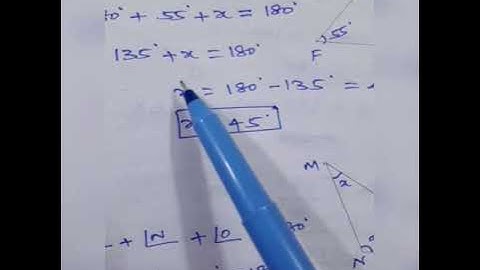 0° + 55° + x = 180°
135° + x = 180°
x = 180° - 135° =
45°
55°
F
M
x
+ ∠N + ∠O
N